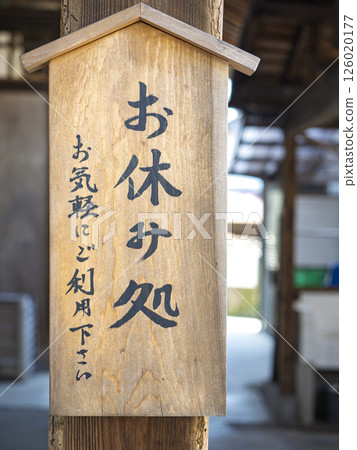 お休み処
お気軽にご利用下さい
PIXTA
pixta.jp - 126020177